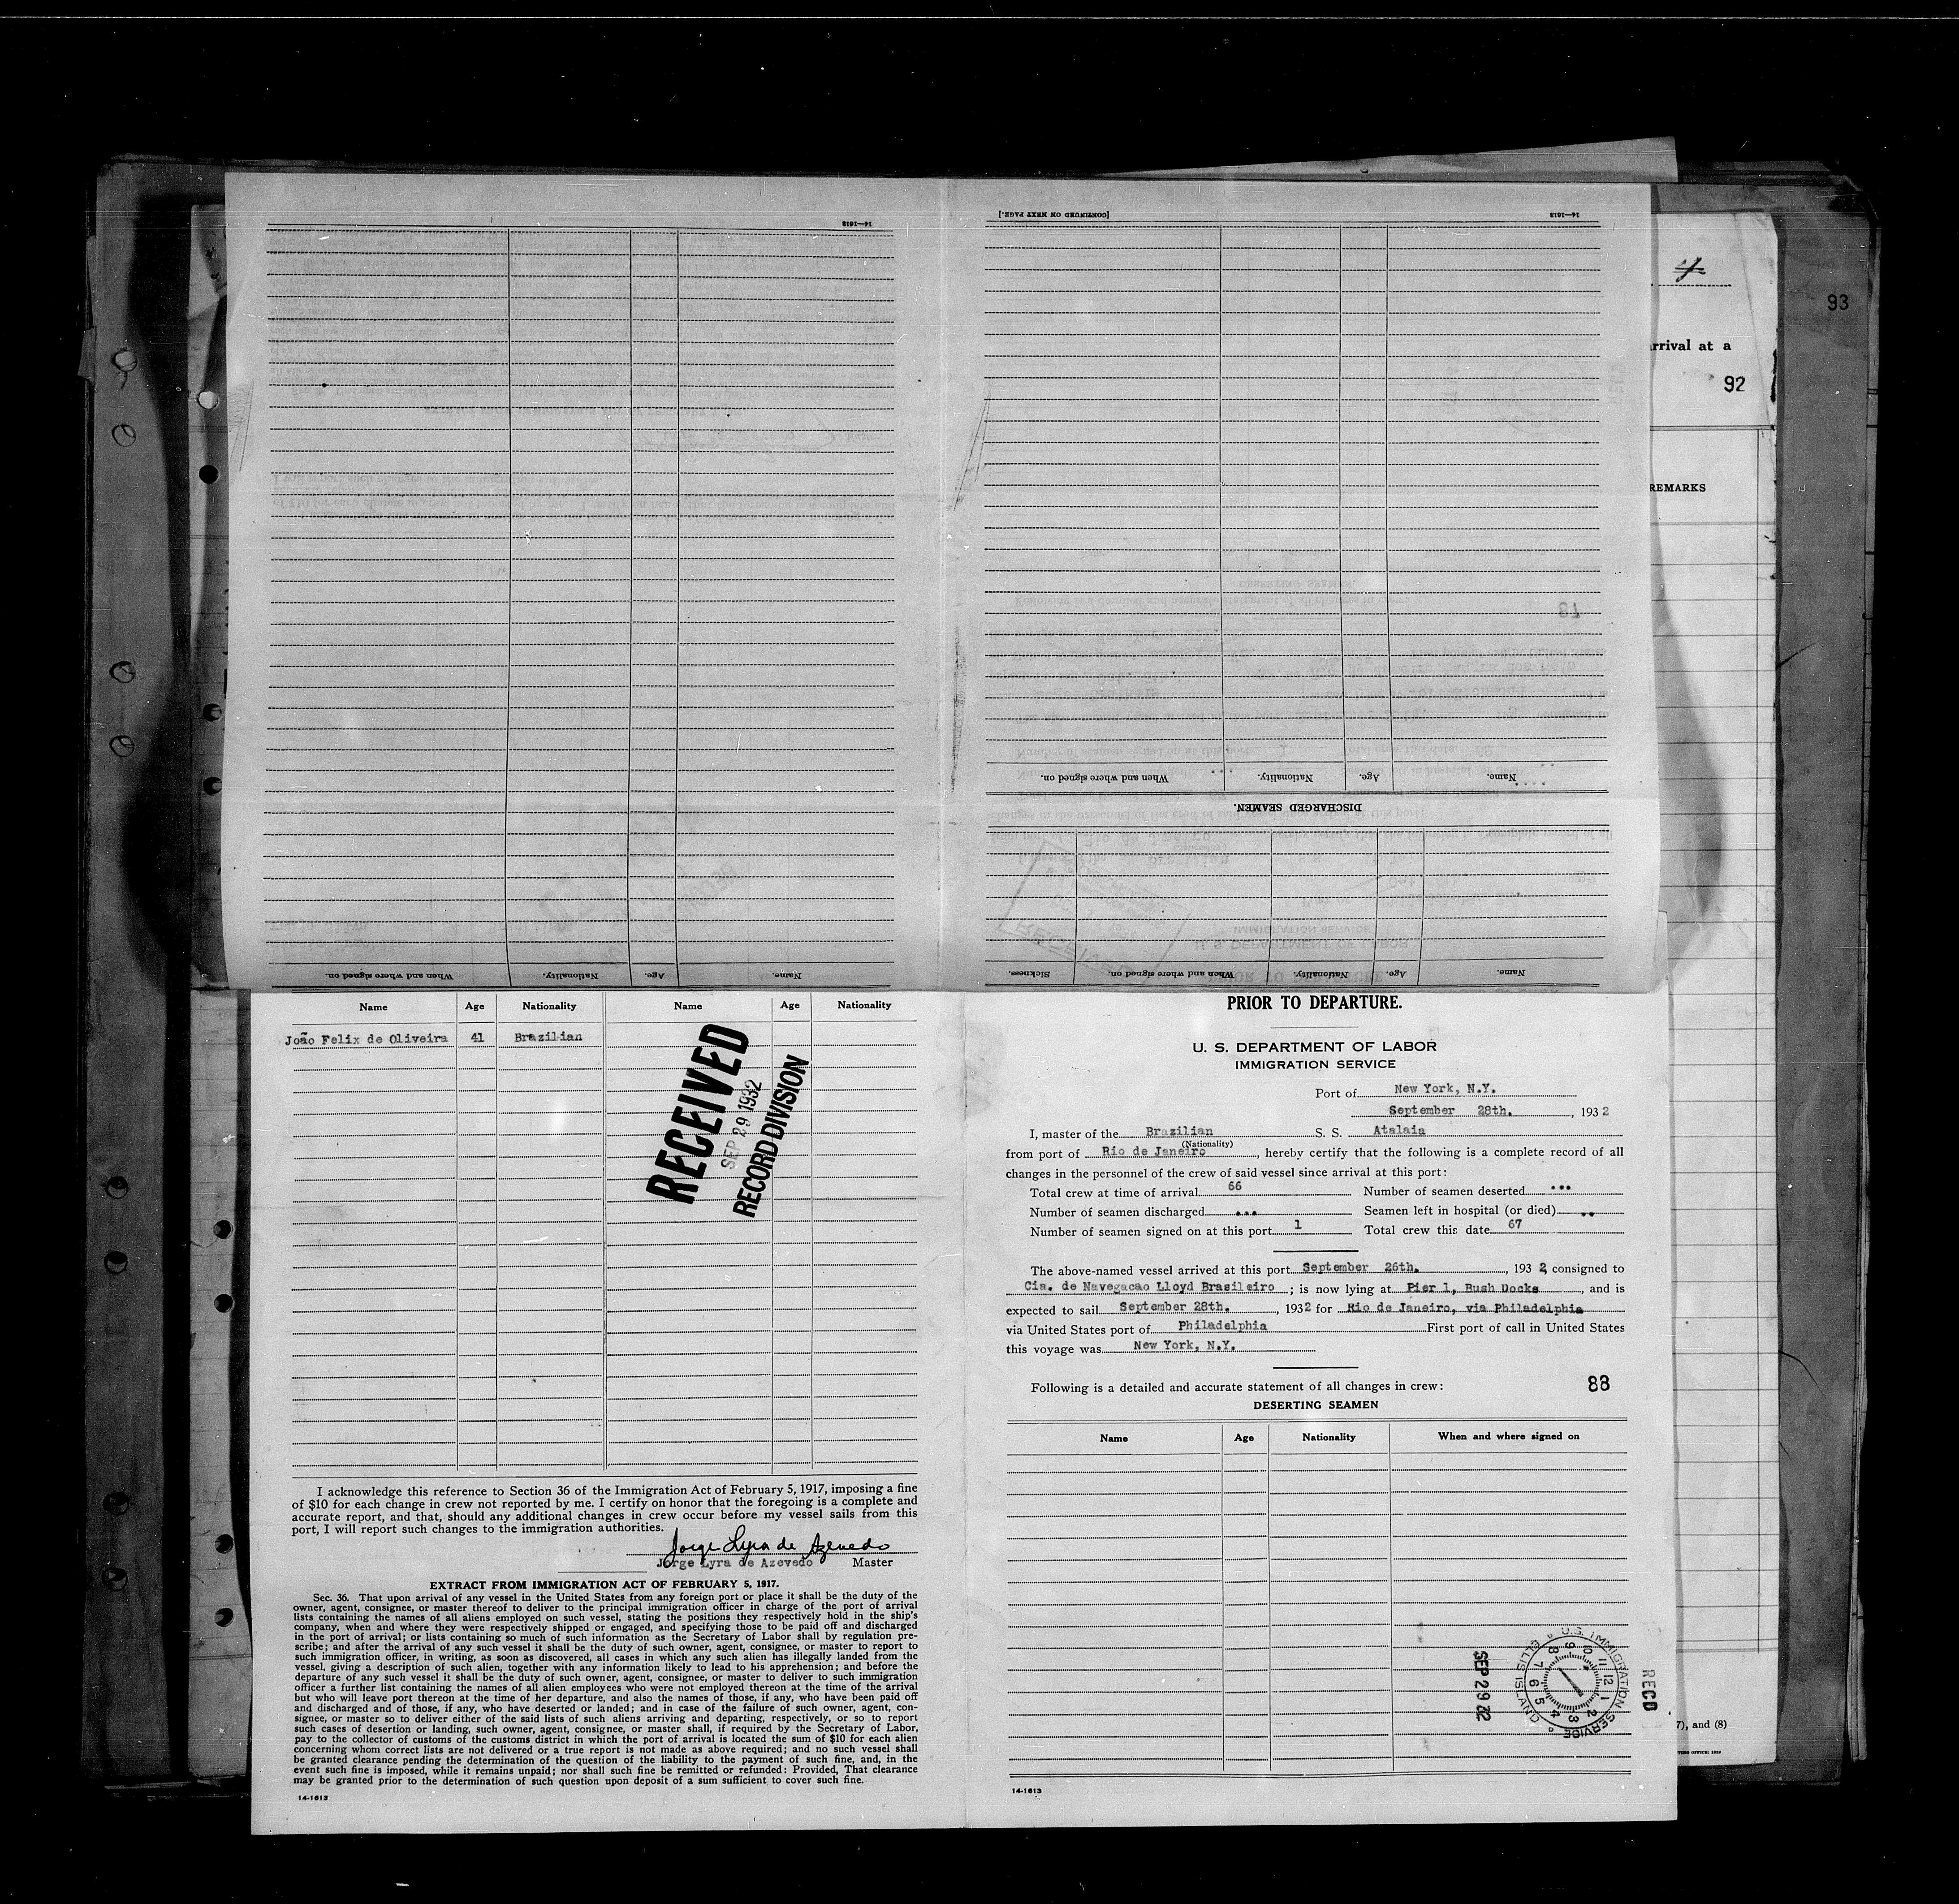 [CONTINUED ON NEXT PAGE.]
14—1613
14—1613
When and where signed on.
Nationality.
Age.
Name.
DISCHARGED SEAMEN.
Sickness.
When and where signed on.
Nationality.
Age.
Name.
When and where signed on.
Nationality.
Age.
Name.
4
93
rrival at a
92
REMARKS
7), and (8)
Name Age Nationality Name Age Nationality
João Felix de Oliveira 41 Brazilian
RECEIVED
SEP 29 1932
RECORD DIVISION
I acknowledge this reference to Section 36 of the Immigration Act of February 5, 1917, imposing a fine
of $10 for each change in crew not reported by me. I certify on honor that the foregoing is a complete and
accurate report, and that, should any additional changes in crew occur before my vessel sails from this
port, I will report such changes to the immigration authorities.
Jorge Lyra de Azevedo
Jorge Lyra de Azevedo Master
EXTRACT FROM IMMIGRATION ACT OF FEBRUARY 5, 1917.
Sec. 36. That upon arrival of any vessel in the United States from any foreign port or place it shall be the duty of the
owner, agent, consignee, or master thereof to deliver to the principal immigration officer in charge of the port of arrival
lists containing the names of all aliens employed on such vessel, stating the positions they respectively hold in the ship's
company, when and where they were respectively shipped or engaged, and specifying those to be paid off and discharged
in the port of arrival; or lists containing so much of such information as the Secretary of Labor shall by regulation pre-
scribe; and after the arrival of any such vessel it shall be the duty of such owner, agent, consignee, or master to report to
such immigration officer, in writing, as soon as discovered, all cases in which any such alien has illegally landed from the
vessel, giving a description of such alien, together with any information likely to lead to his apprehension; and before the
departure of any such vessel it shall be the duty of such owner, agent, consignee, or master to deliver to such immigration
officer a further list containing the names of all alien employees who were not employed thereon at the time of the arrival
but who will leave port thereon at the time of her departure, and also the names of those, if any, who have been paid off
and discharged and of those, if any, who have deserted or landed; and in case of the failure of such owner, agent, con-
signee, or master so to deliver either of the said lists of such aliens arriving and departing, respectively, or so to report
such cases of desertion or landing, such owner, agent, consignee, or master shall, if required by the Secretary of Labor,
pay to the collector of customs of the customs district in which the port of arrival is located the sum of $10 for each alien
concerning whom correct lists are not delivered or a true report is not made as above required; and no such vessel shall
be granted clearance pending the determination of the question of the liability to the payment of such fine, and, in the
event such fine is imposed, while it remains unpaid; nor shall such fine be remitted or refunded: Provided, That clearance
may be granted prior to the determination of such question upon deposit of a sum sufficient to cover such fine.
14-1613
PRIOR TO DEPARTURE.
U. S. DEPARTMENT OF LABOR
IMMIGRATION SERVICE
Port of New York, N.Y.
September 28th., 1932
I, master of the Brazilian S. S. Atalaia
(Nationality)
from port of Rio de Janeiro, hereby certify that the following is a complete record of all
changes in the personnel of the crew of said vessel since arrival at this port:
Total crew at time of arrival 66 Number of seamen deserted ...
Number of seamen discharged ... Seamen left in hospital (or died) ..
Number of seamen signed on at this port 1 Total crew this date 67
The above-named vessel arrived at this port September 26th., 1932, consigned to
Cia. de Navegacao Lloyd Brasileiro; is now lying at Pier 1, Bush Docks, and is
expected to sail September 28th., 1932 for Rio de Janeiro, via Philadelphia
via United States port of Philadelphia First port of call in United States
this voyage was New York, N.Y.
Following is a detailed and accurate statement of all changes in crew: 88
DESERTING SEAMEN
Name Age Nationality When and where signed on
SEP 29 32
U.S. IMMIGRATION SERVICE
ELLIS ISLAND
12 1 2 3 4 5 6 7 8 9 10 11
RECD
14-1613